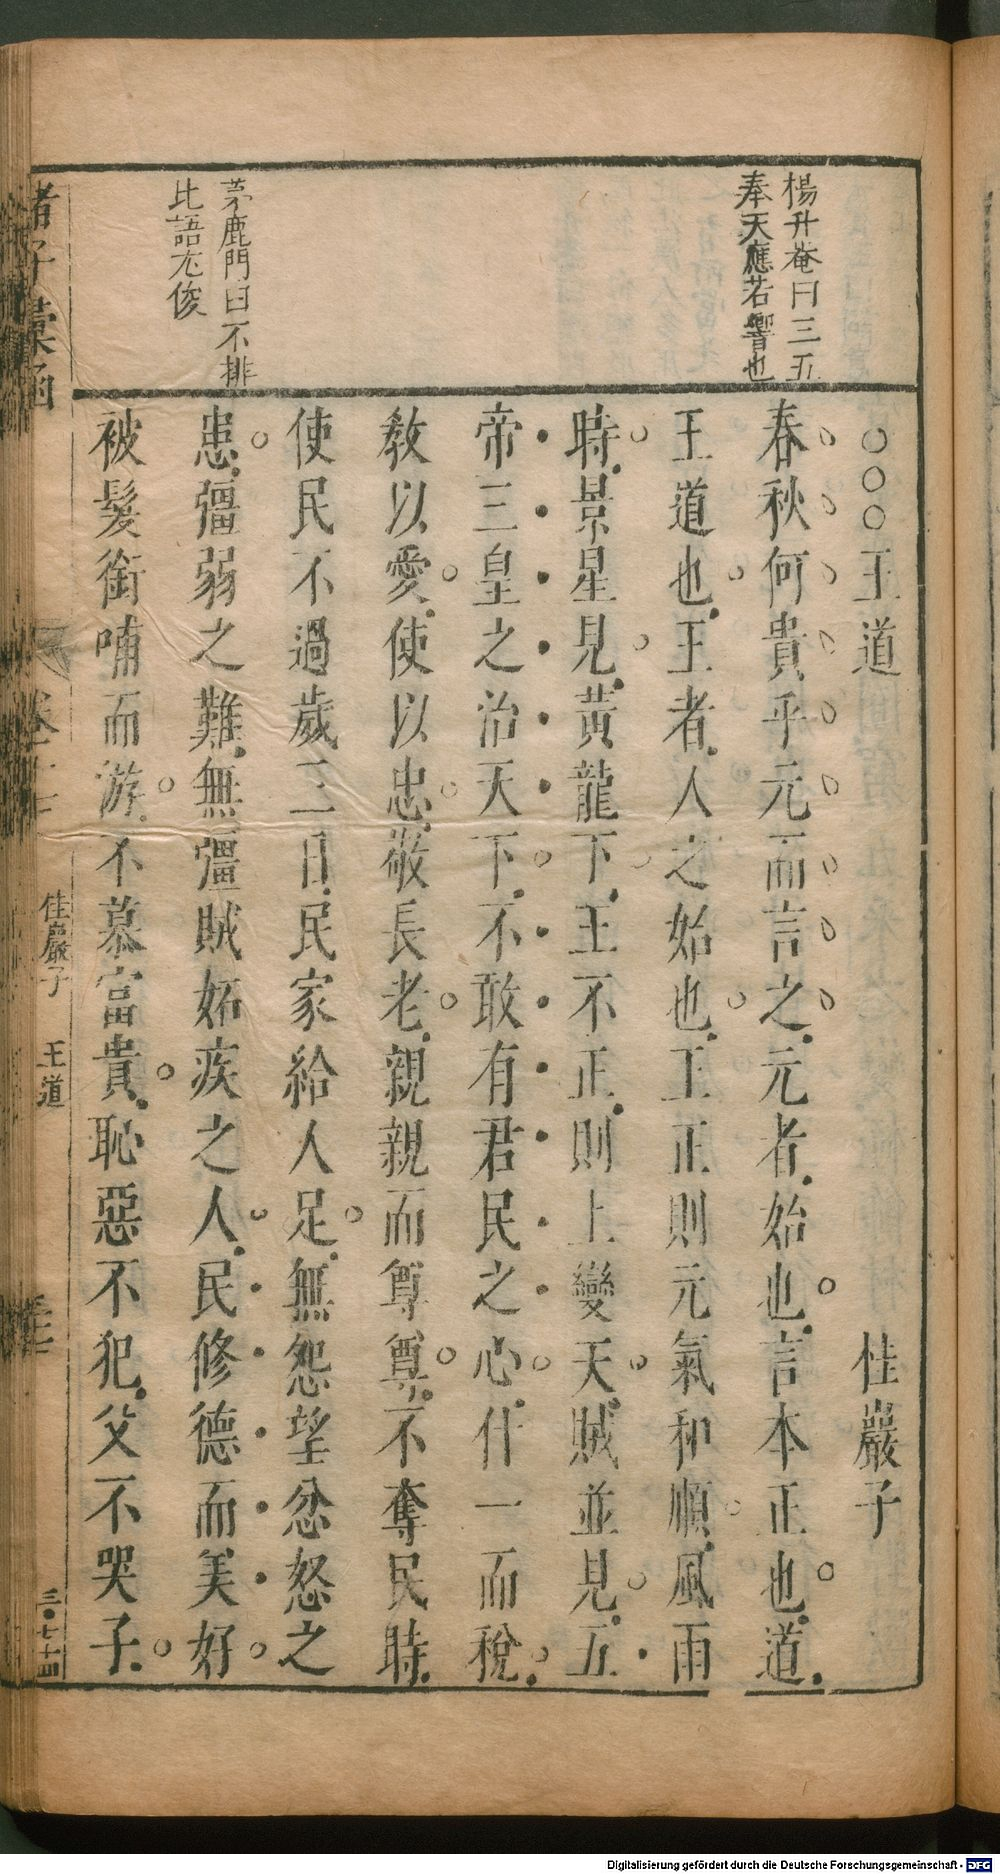 楊升菴曰三五
奉天應若響也
茅鹿門曰不排
比語尤俊
○○○王道 桂巖子
春秋何貴乎元而言之元者始也言本正也道
王道也王者人之始也王正則元氣和順風雨
時景星見黃龍下王不正則上變天賊並見五
帝三皇之治天下不敢有君民之心什一而稅
教以愛使以忠敬長老親親而尊尊不奪民時
使民不過歲三日民家給人足無怨望忿怒之
患彊弱之難無彊賊妬疾之人民修德而美好
被髮銜哺而游不慕富貴恥惡不犯父不哭子
諸子彙函
卷十七
桂巖子 王道
Digitalisierung gefördert durch die Deutsche Forschungsgemeinschaft - DFG